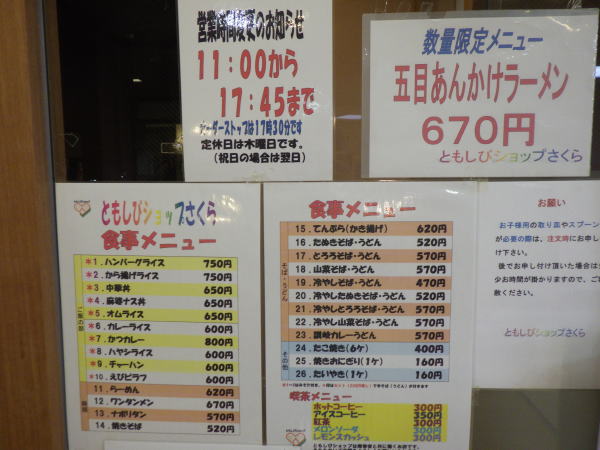 営業時間変更のお知らせ
11：00から
17：45まで
オーダーストップは17時30分です
定休日は木曜日です。
（祝日の場合は翌日）
数量限定メニュー
五目あんかけラーメン
670円
ともしびショップさくら
ともしびショップさくら
食事メニュー
ご飯の部
*1．ハンバーグライス 750円
*2．から揚げライス 750円
*3．中華丼 650円
*4．麻婆ナス丼 650円
*5．オムライス 650円
*6．カレーライス 600円
*7．かつカレー 800円
*8．ハヤシライス 600円
*9．チャーハン 600円
*10．えびピラフ 600円
麺類
11．らーめん 620円
12．ワンタンメン 670円
13．ナポリタン 570円
14．焼きそば 520円
食事メニュー
そば・うどん
15．てんぷら(かき揚げ) 620円
16．たぬきそば・うどん 520円
17．とろろそば・うどん 570円
18．山菜そば・うどん 570円
19．冷やしそば・うどん 470円
20．冷やしたぬきそば・うどん 520円
21．冷やしとろろそば・うどん 570円
22．冷やし山菜そば・うどん 570円
23．讃岐カレーうどん 570円
その他
24．たこ焼き(6ヶ) 400円
25．焼きおにぎり(1ヶ) 160円
26．たいやき(1ヶ) 160円
喫茶メニュー
ホットコーヒー 300円
アイスコーヒー 350円
紅茶 300円
メロンソーダ 300円
レモンスカッシュ 300円
お願い
お子様用の取り皿やスプーン
が必要の際は、注文時にお申し
け下さい。
後でお申し付け頂いた場合は
少お時間が掛かりますので、ご
敷ください。
ともしびショップさくら